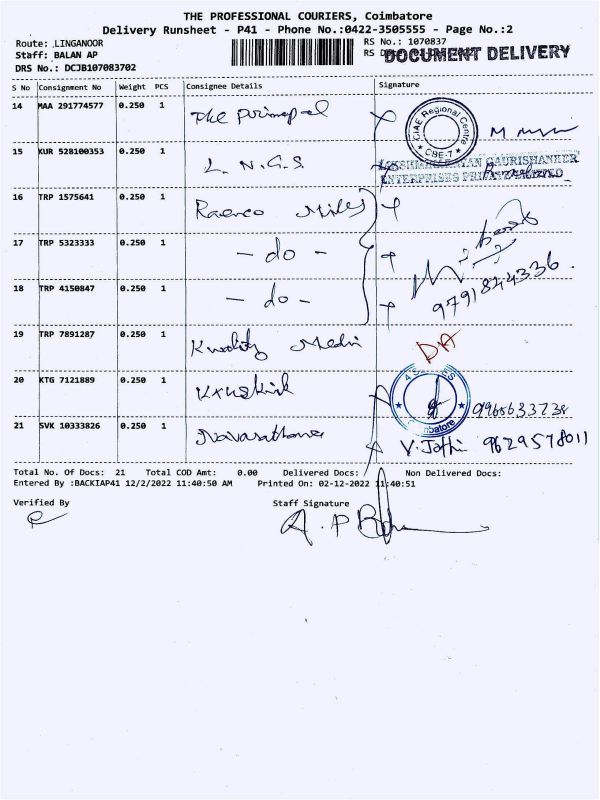 THE PROFESSIONAL COURIERS, Coimbatore
Delivery Runsheet - P41 - Phone No.:0422-3505555 - Page No.:2
Route: LINGANOOR
RS No.: 1070837
Staff: BALAN AP
RS D
DOCUMENT DELIVERY
DRS No.: DCJB107083702
S No Consignment No Weight PCS Consignee Details Signature
14 MAA 291774577 0.250 1 The Principal
CIAE Regional Centre
★ CBE-7 ★
15 KUR 528100353 0.250 1 L. N. G. S.
GAURISHANKER
ENTERPRISES PRIVATE LIMITED
16 TRP 1575641 0.250 1 Raenco Miles
17 TRP 5323333 0.250 1 - do -
18 TRP 4150847 0.250 1 - do -
9791844336
19 TRP 7891287 0.250 1 Kwality Medri
DA
20 KTG 7121889 0.250 1
Coimbatore
9965633738
21 SVK 10333826 0.250 1 Navarathana
V. Jothi 9629578011
Total No. Of Docs: 21 Total COD Amt: 0.00 Delivered Docs: Non Delivered Docs:
Entered By :BACKIAP41 12/2/2022 11:40:50 AM Printed On: 02-12-2022 11:40:51
Verified By Staff Signature
A. P